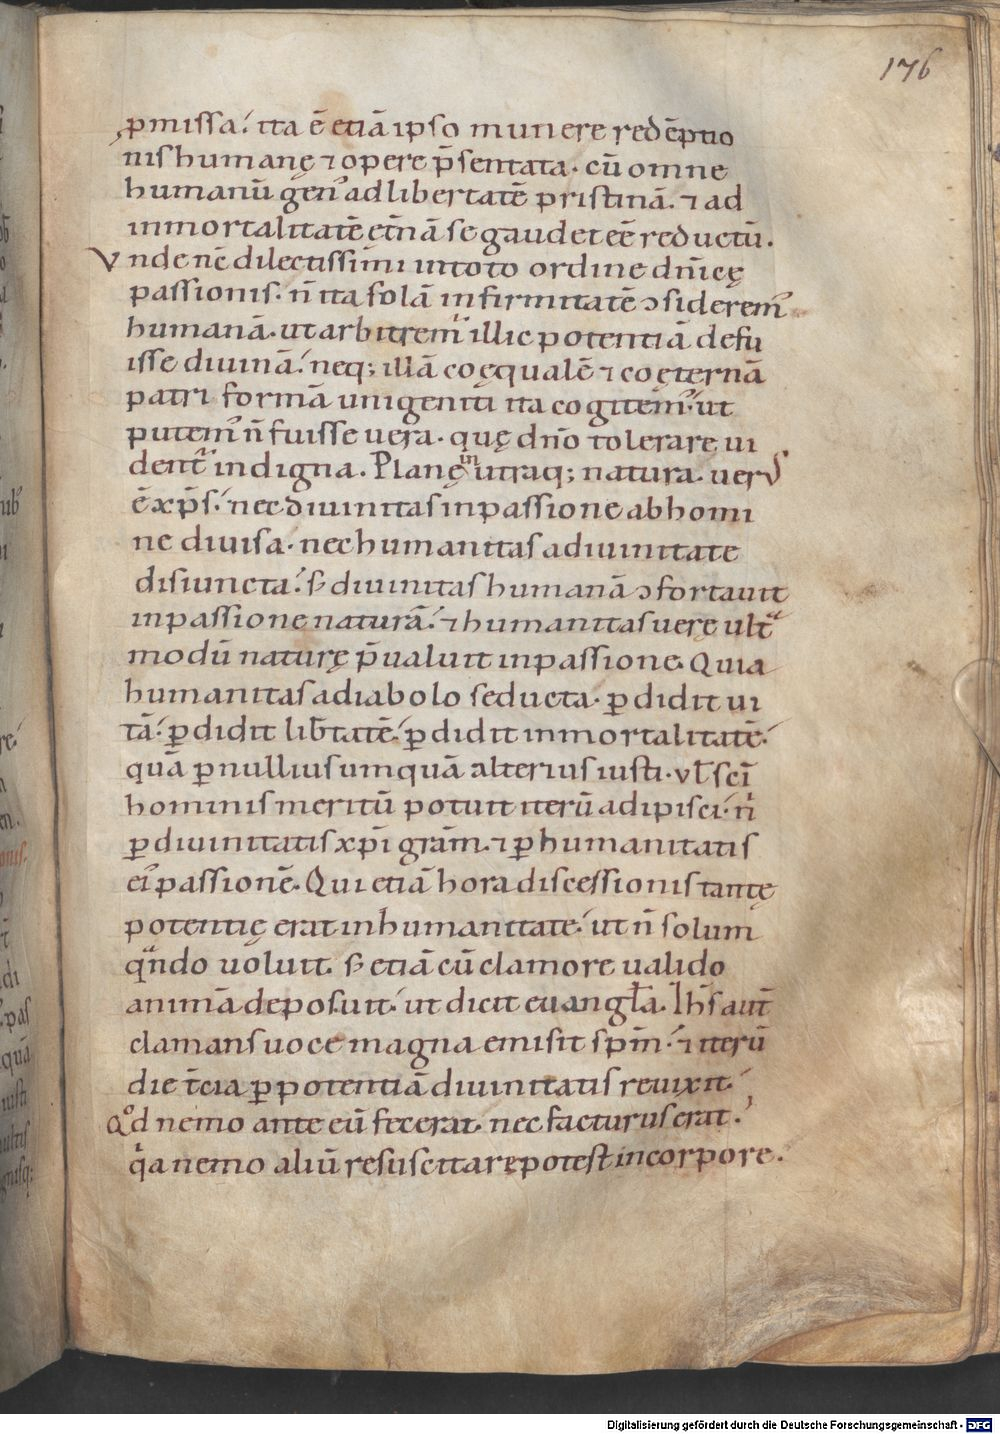 176
ꝓmissa. ita ē etiā ipso munere redēptio
nis humanę ⁊ opere p̄sentata. cū omne
humanū gen᾽ ad libertatē pristinā. ⁊ ad
inmortalitatē et̄nā se gaudet eē reductū.
Vnde nc̄ dilectissimi in toto ordine dn̄icę
passionis. n̄ ita solā infirmitatē ↄsiderem᾽
humanā. ut arbitrem᾽ illic potentiā defu
isse diuinā. neq; illā coęqualē ⁊ coęternā
patri formā unigeniti ita cogitem᾽. ut
putem᾽ n̄ fuisse uera. quę dn̄o tolerare ui
dent᾽ indigna. Planę in utraq; natura. ver᾽
ē xp̄s. nec diuinitas in passione ab homi
ne diuisa. nec humanitas a diuinitate
disiuncta. s; diuinitas humanā ↄfortauit
in passione naturā. ⁊ humanitas uerę ultͣ
modū naturę p̄ualuit in passione. Quia
humanitas a diabolo seducta. ꝑdidit ui
tā. ꝑdidit lib̄tatē. ꝑdidit inmortalitatē.
quā ꝑ nullius umquā alterius iusti. vl̄ sc̄i
hominis meritū potuit iterū adipisci. nͥ
ꝑ diuinitatis xp̄i grām. ⁊ ꝑ humanitatis
ei᾽ passionē. Qui etiā hora discessionis tantę
potentię erat in humanitate. ut n̄ solum
qͣndo uoluit. s; etiā cū clamore ualido
animā deposuit. ut dicit euangl̄a. Ih̄s aut̄
clamans uoce magna emisit sp̄m. ⁊ iterū
die t̄cia ꝑ potentiā diuinitatis reuixit.
Qd̊ nemo ante eū fecerat. nec facturus erat.
qͥa nemo aliū resuscitare potest in corpore.
Digitalisierung gefördert durch die Deutsche Forschungsgemeinschaft - DFG